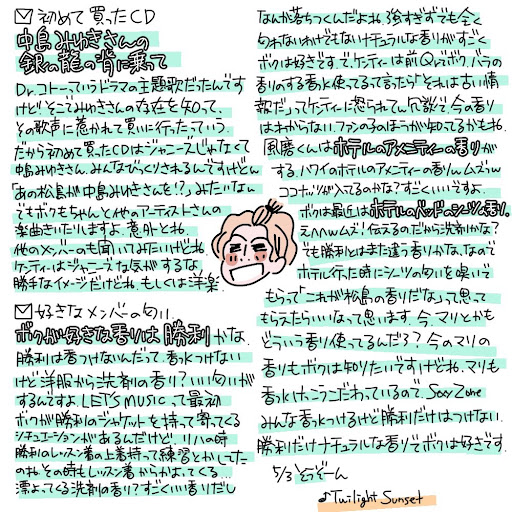 初めて買ったCD
中島みゆきさんの
銀の龍の背に乗って
Dr.コトーっていうドラマの主題歌だったんです
けど！そこでみゆきさんの存在を知って、
その歌声に惹かれて買いに行ったっていう。
だから初めて買ったCDはジャニーズじゃなくて
中島みゆきさん。みんなびっくりされるんですけど。
「あの松島が中島みゆきさんを!?」みたいなﾑ
でもボクもちゃんと他のアーティストさんの
楽曲きいたりしますよ。意外とね。
他のメンバーのも聞いてみたいけどね。
ケンティーはジャニーズな気がするな。
勝手なイメージだけどね。もしくは洋楽。
好きなメンバーの匂い
ボクが好きな香りは勝利かな。
勝利は香つけないんだって。香水つけない
けど洋服から洗剤の香り？いい匂いが
するんですよ。LET'S MUSICって最初
ボクが勝利のジャケットを持って寄ってくる
シチュエーションがあるんだけど、リハの時
勝利のレッスン着の上着持って練習とかしてた
のね。その時もレッスン着からかよってくる…
漂よってくる洗剤の香り？すごくいい香りだし
なんか落ちつくんだよね。強すぎずでも全く
匂わないわけでもないナチュラルな香りがすごく
ボクは好きです。で、ケンティーは前QrでボクがバラのC
香りのする香水使ってるって言ったら「それは古い情
報だ」ってケンティーに怒られてん。冗談で。今の香り
はわからない。ファンの子のほうが知ってるかもね。
風磨くんはホテルのアメニティーの香りが
する。ハワイのホテルのアメニティーの香り。んムズいっ
ココナッツが入ってるのかな？すごくいいですよ。
ボクは最近はホテルのベッドのシーツの香り。
えへへムズ！伝えるの。だから洗剤かな？
でも勝利とはまた違う香りかな。なので
ホテル行った時にシーツの匂いを嗅いで
もらって「これが松島の香りだな」って思って
もらえたらいいなって思います。今、マリとかも
どういう香り使ってるんだろ？今のマリの
香りもボクは知りたいですけどね。マリも
香水けっこうこだわっているので、Sexy Zone
みんな香水つけるけど勝利だけはつけない。
勝利だけナチュラルな香りでボクは好きです。
5/3 らじらー
♪Twilight Sunset